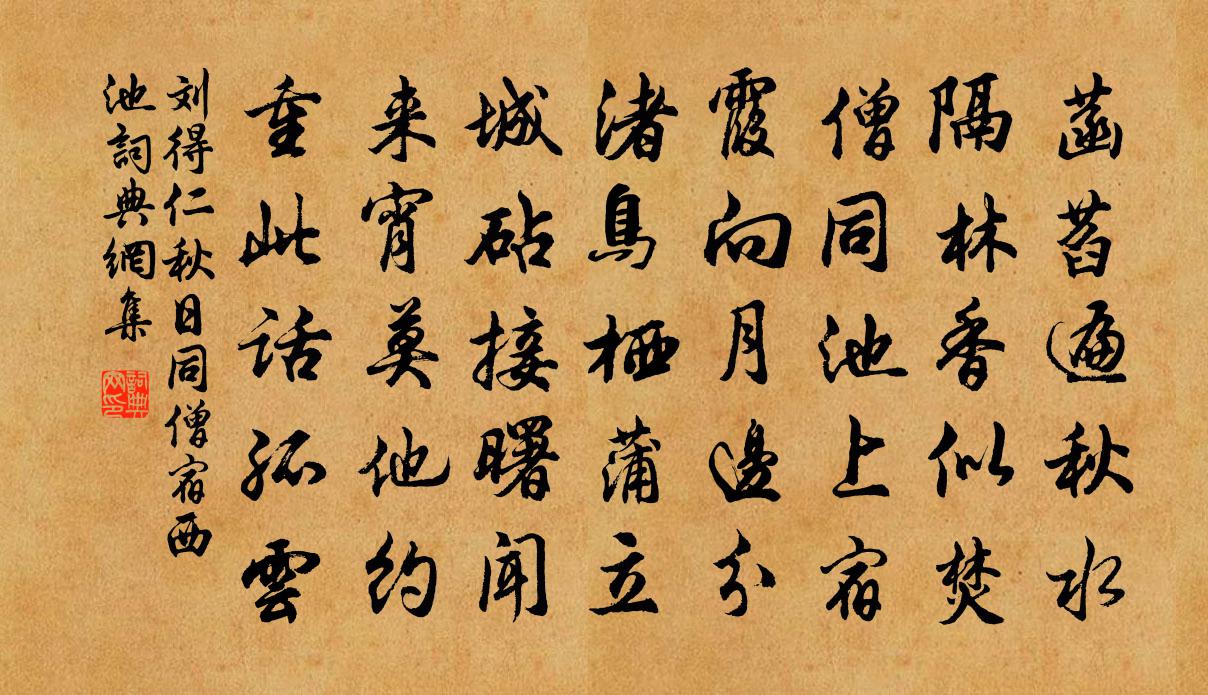 菡萏遍秋水
隔林香似焚
僧同池上宿
霞向月邊分
渚鳥栖蒲立
城砧接曙聞
来宵莫他約
重此話孤雲
刘得仁秋日同僧宿西
池詞典網集
詞典
网印